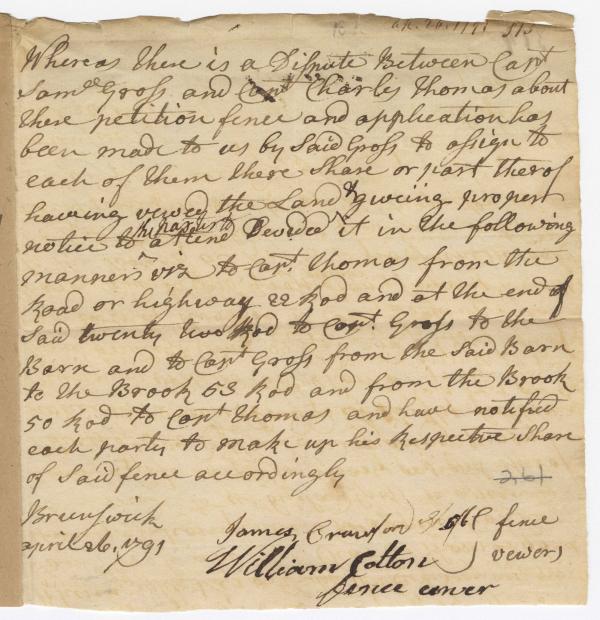 ap. 26. 1791 515
Whereas there is a Dispute Between Capt
Samll Gross and Capt Charles Thomas about
there petition fence and application has
been made to us by Said Gross to assign to
each of them there Share or part therof
haveing vewed the Land & giveing proper
notice to attend Devided it in the following
manner viz to Capt. Thomas from the
Road or highway 22 Rod and at the end of
Said twenty two Rod to Capt. Gross to the
Barn and to Capt Gross from the Said Barn
to the Brook 53 Rod and from the Brook
50 Rod to Capt Thomas and have notified
each party to make up his Respective Share
of Said fence accordingly
261
Brunswick
april 26, 1791
James Crawford fence
William Cotton vewers
fence